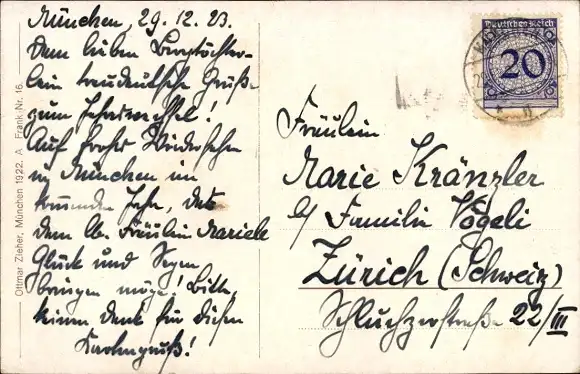 München, 29.12.23.
Dem lieben Bergtöchter-
lein treudeutsche Grüße
zum Jahreswechsel!
Auf frohes Wiedersehn
in München im
kommenden Jahr, das
dem lb. Fräulein Mariele
Glück und Segen
bringen möge! Bitte,
keinen Dank für diesen
Kartengruß!
Ottmar Zieher, München 1922. A Frank-Nr. 16
Deutsches Reich
20
Fräulein
Marie Kränzler
b/ Familie Vögeli
Zürich (Schweiz)
Schluchzerstraße 22/III